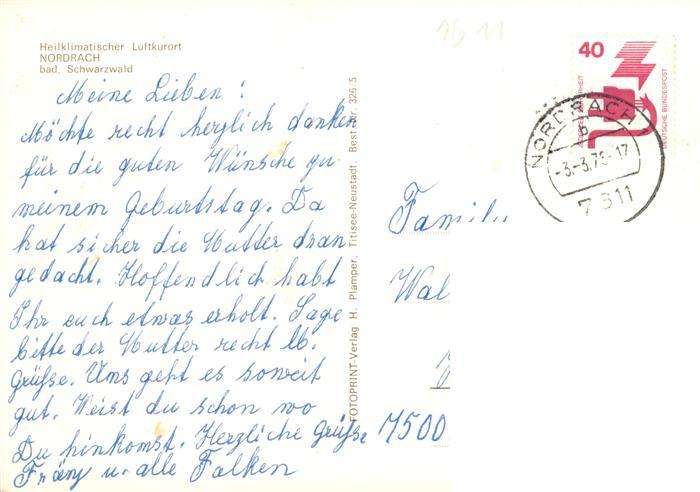 Heilklimatischer Luftkurort
NORDRACH
bad. Schwarzwald
Meine Lieben!
Möchte recht herzlich danken
für die guten Wünsche zu
meinem Geburtstag. Da
hat sicher die Mutter dran
gedacht. Hoffendlich habt
Ihr euch etwas erholt. Sage
bitte der Mutter recht lb.
Grüße. Uns geht es soweit
gut. Weist du schon wo
Du hinkomst. Herzliche Grüße
u. alle Falken
FOTOPRINT-Verlag H. Plamper, Titisee-Neustadt Best.-Nr. 326 5
40
DEUTSCHE BUNDESPOST
NORDRACH
b
7611
Wal
7500